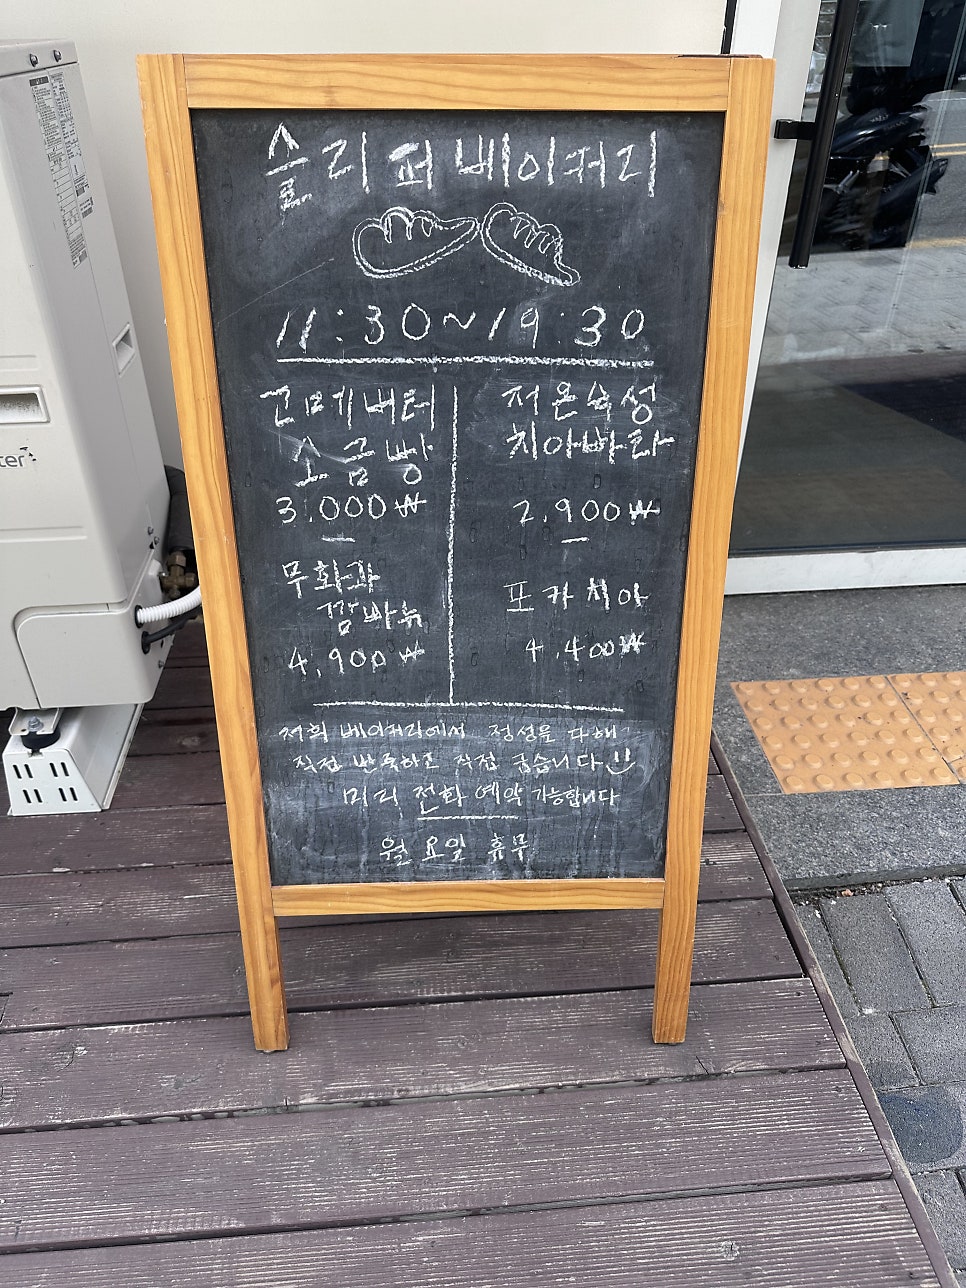 슬리퍼 베이커리
11:30~19:30
고메버터
소금빵
3.000₩
무화과
깜빠뉴
4,900₩
저온숙성
치아바타
2.900₩
포카치아
4.400₩
저희 베이커리에서 정성을 다해
직접 반죽하고 직접 굽습니다
미리 전화 예약 가능합니다
월요일 휴무